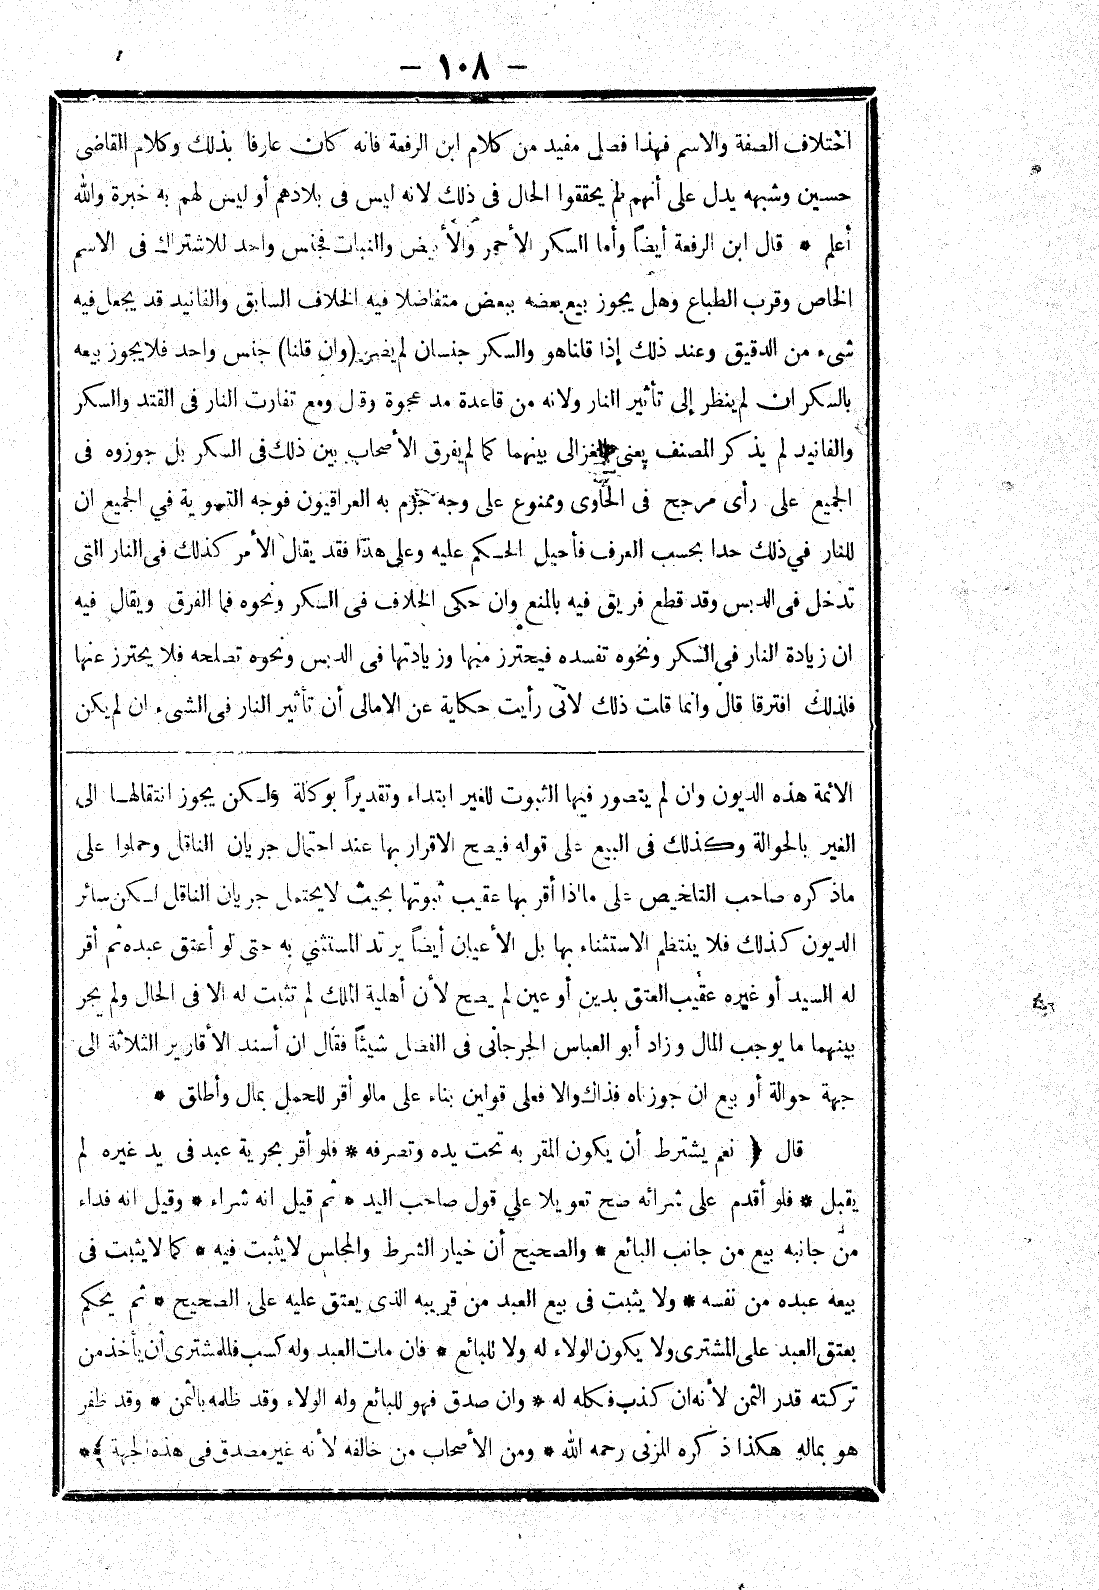 - ١٠٨ -
اختلاف الصفة والاسم فهذا فصل مفيد من كلام ابن الرفعة فانه كان عارفا بذلك وكلام القاضى
حسين وشبهه يدل على أنهم لم يحققوا الحال فى ذلك لانه ليس فى بلادهم أو ليس لهم به خبرة والله
أعلم * قال ابن الرفعة أيضاً وأما السكر الأحمر والأبيض والنبات فجنس واحد للاشتراك فى الاسم
الخاص وقرب الطباع وهل يجوز بيع بعضه ببعض متفاضلا فيه الخلاف السابق والفانيد قد يجعل فيه
شىء من الدقيق وعند ذلك إذا قلنا هو والسكر جنسان لم يضر (وان قلنا) جنس واحد فلا يجوز بيعه
بالسكر ان لم ينظر إلى تأثير النار ولانه من قاعدة مد عجوة وقال ومع تفارت النار فى القند والسكر
والفانيد لم يذكر المصنف يعنى الغزالى بينهما كما لم يفرق الأصحاب بين ذلك فى السكر بل جوزوه فى
الجميع على رأى مرجح فى الحاوى وممنوع على وجه جزم به العراقيون فوجه التسوية في الجميع ان
للنار في ذلك حدا بحسب العرف فأحيل الحكم عليه وعلى هذا فقد يقال الأمر كذلك فى النار التى
تدخل فى الدبس وقد قطع فريق فيه بالمنع وان حكى الخلاف فى السكر ونحوه فما الفرق ويقال فيه
ان زيادة النار فى السكر ونحوه تفسده فيحترز منها وزيادتها فى الدبس ونحوه تصلحه فلا يحترز عنها
فلذلك افترقا قال وانما قلت ذلك لانى رأيت حكاية عن الامالى أن تأثير النار فى الشىء ان لم يكن
الائمة هذه الديون وان لم يتصور فيها الثبوت للغير ابتداء وتقديراً بوكالة ولكن يجوز انتقالها الى
الغير بالحوالة وكذلك فى البيع على قوله فيصح الاقرار بها عند احتمال جريان الناقل وحملوا على
ماذكره صاحب التلخيص على ماذا أقر بها عقيب ثبوتها بحيث لايحتمل جريان الناقل لكن سائر
الديون كذلك فلا ينتظم الاستثناء بها بل الأعيان أيضاً يرتد المستثني به حتى لو أعتق عبده ثم أقر
له السيد أو غيره عقيب العتق بدين أو عين لم يصح لأن أهلية الملك لم تثبت له الا فى الحال ولم يجر
بينهما ما يوجب المال وزاد أبو العباس الجرجانى فى الفصل شيئاً فقال ان أسند الأقارير الثلاثة الى
جهة حوالة أو بيع ان جوزناه فذاك والا فعلى قولين بناء على مالو أقر للحمل بمال وأطلق *
قال ﴿ نعم يشترط أن يكون المقر به تحت يده وتصرفه * فلو أقر بحرية عبد فى يد غيره لم
يقبل * فلو أقدم على شرائه صح تعويلا علي قول صاحب اليد * ثم قيل انه شراء * وقيل انه فداء
من جانبه بيع من جانب البائع * والصحيح أن خيار الشرط والمجلس لايثبت فيه * كما لايثبت فى
بيعه عبده من نفسه * ولا يثبت فى بيع العبد من قريبه الذى يعتق عليه على الصحيح * ثم يحكم
بعتق العبد على المشترى ولا يكون الولاء له ولا للبائع * فان مات العبد وله كسب فللمشترى أن يأخذ من
تركته قدر الثمن لأنه ان كذب فكله له * وان صدق فهو للبائع وله الولاء وقد ظلمه بالثمن * وقد ظفر
هو بماله هكذا ذكره المزنى رحمه الله * ومن الأصحاب من خالفه لأنه غير مصدق فى هذه الجهة ﴾ *